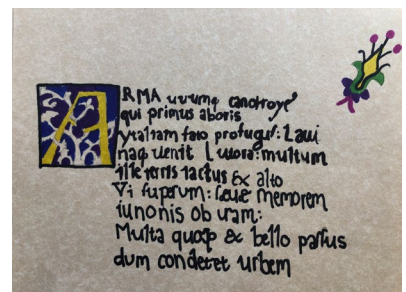 ARMA uirumq canotroye
qui primus aboris
ytaliam fato profugus: Laui
naq uenit l uora: multum
ille terris iactus & alto
Vi superum: seue memorem
iunonis ob iram:
Multa quoqp & bello passus
dum conderet urbem